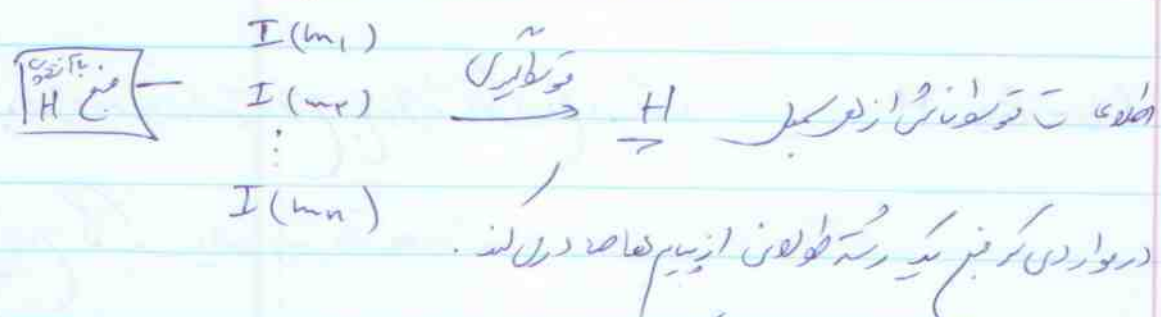 I(m₁)
با آنتروپی
منبع H
I(m₂) متوسط‌گیری H اطلاعات متوسط ناشی از هر سمبل
⋮
I(mₙ)
در مواردی که منبع یک رشته طولانی از پیام‌ها صادر می‌کند.